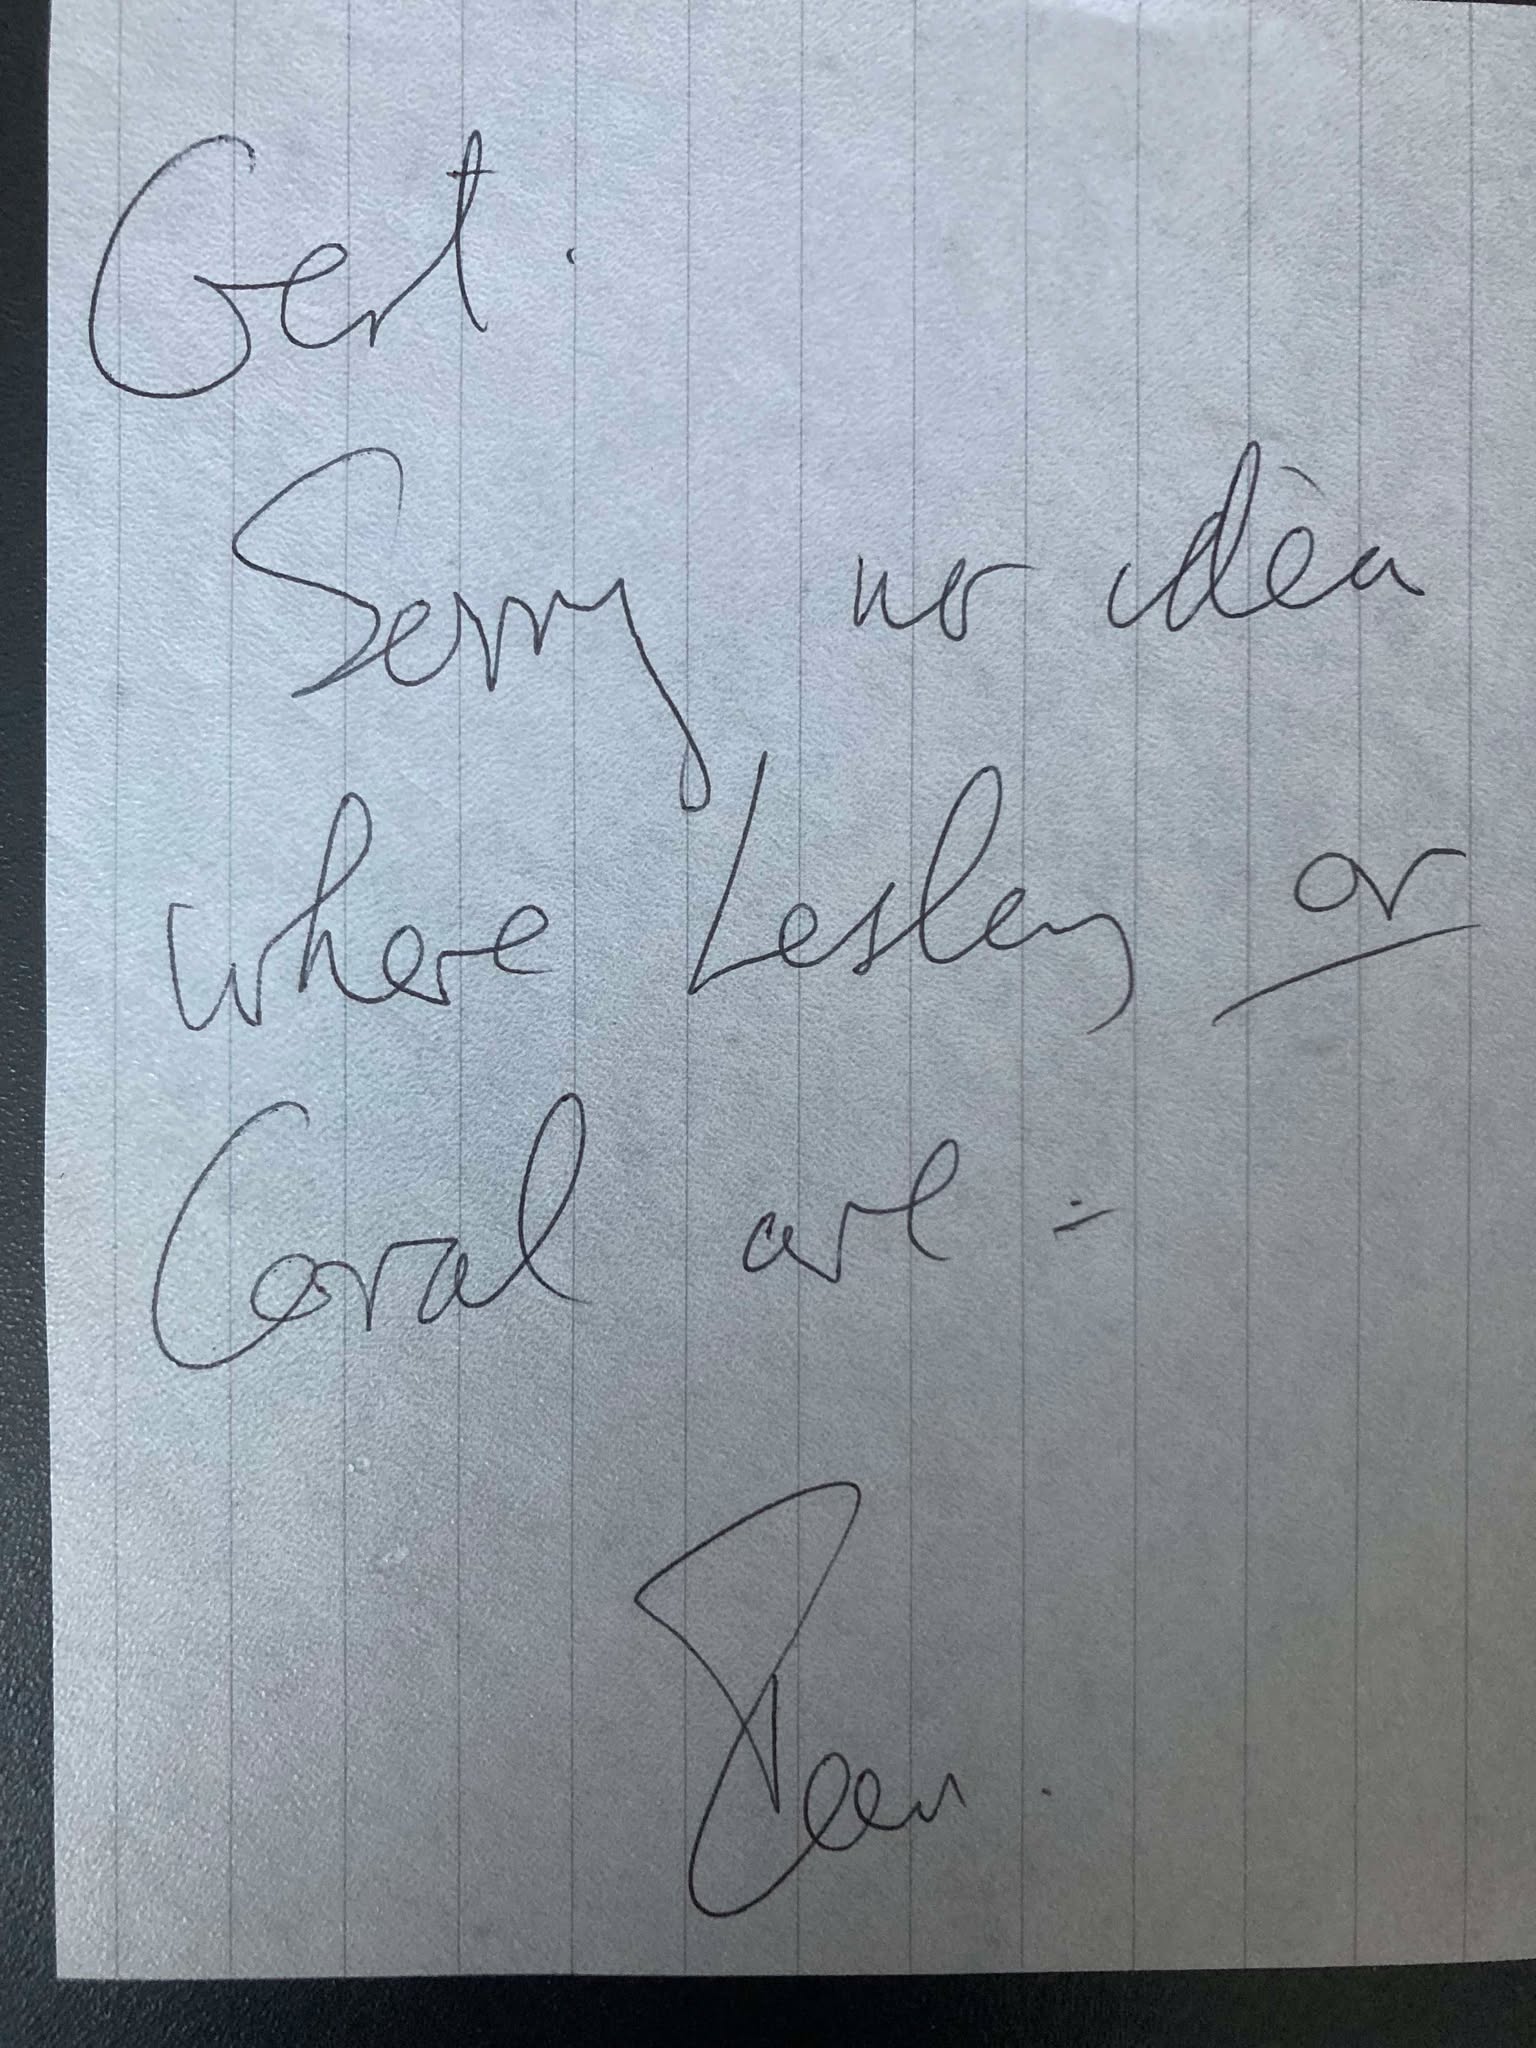 Gert.
Sorry no idea
where Lesley or
Coral are -